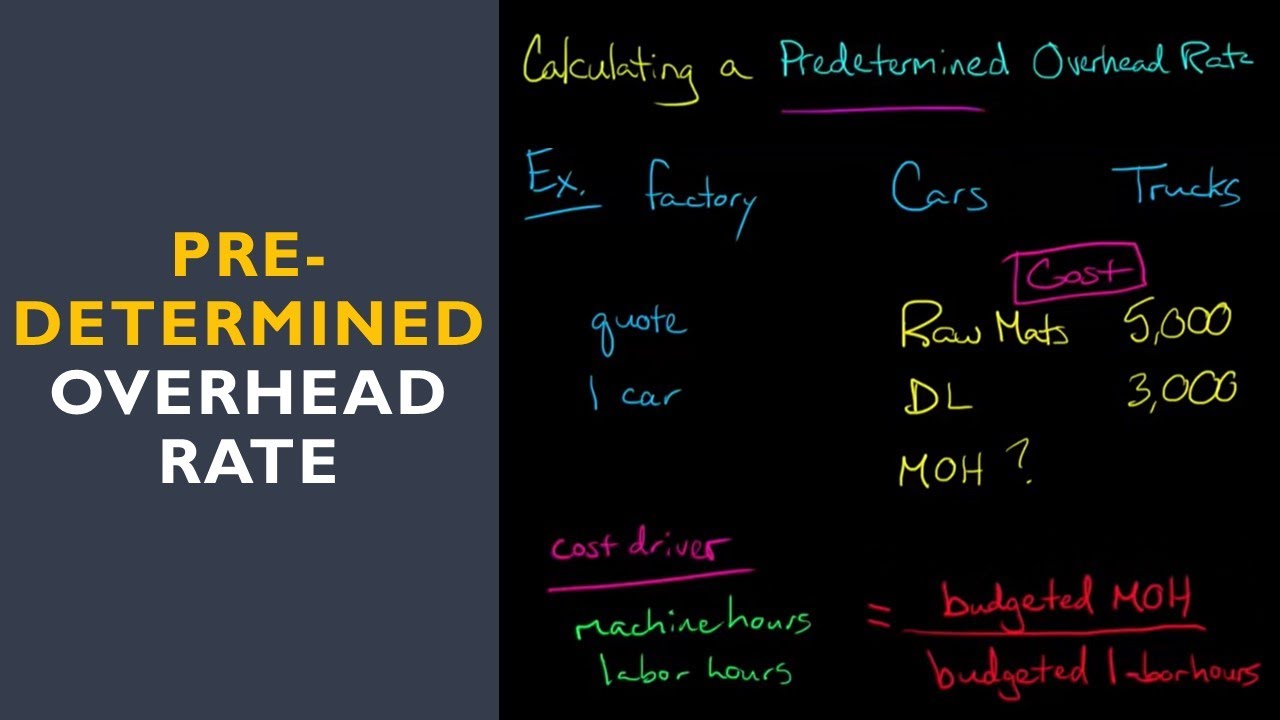 PRE-
DETERMINED
OVERHEAD
RATE
Calculating a Predetermined Overhead Rate
Ex. factory Cars Trucks
Cost
quote Raw Mats 5,000
1 car DL 3,000
MOH ?
cost driver
machine hours
labor hours
= budgeted MOH
budgeted laborhours